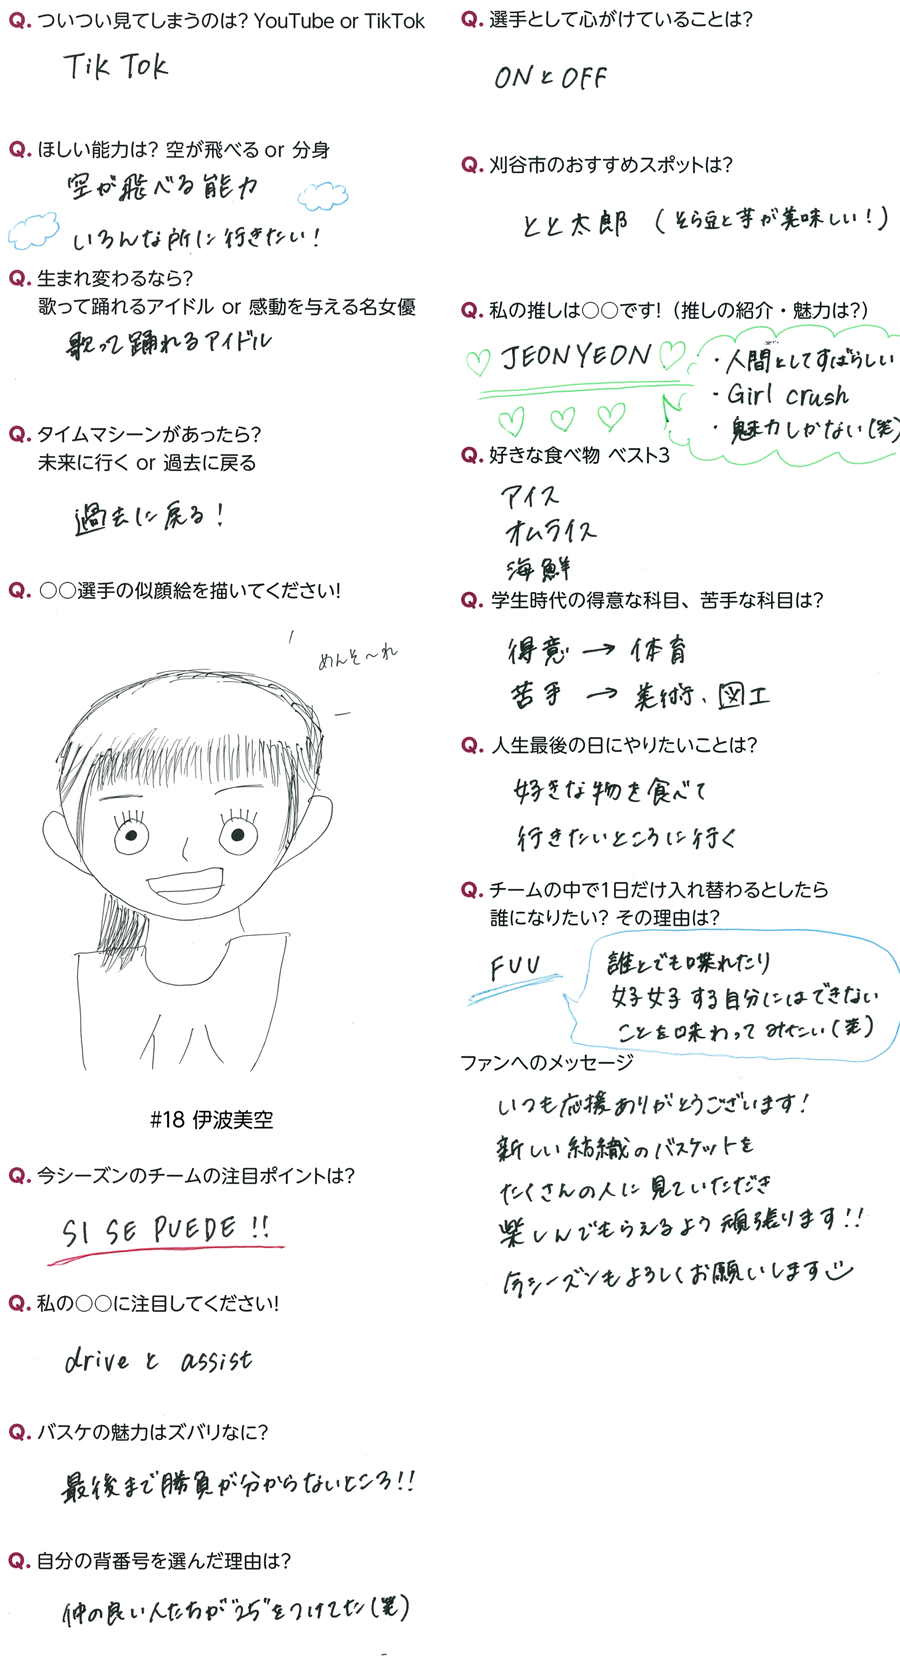 Q. ついつい見てしまうのは? YouTube or TikTok
TikTok
Q. ほしい能力は? 空が飛べる or 分身
空が飛べる能力
いろんな所に行きたい!
Q. 生まれ変わるなら?
歌って踊れるアイドル or 感動を与える名女優
歌って踊れるアイドル
Q. タイムマシーンがあったら?
未来に行く or 過去に戻る
過去に戻る!
Q. ○○選手の似顔絵を描いてください!
めんそ〜れ
#18 伊波美空
Q. 今シーズンのチームの注目ポイントは?
SI SE PUEDE!!
Q. 私の○○に注目してください!
driveと assist
Q. バスケの魅力はズバリなに?
最後まで勝負が分からないところ!!
Q. 自分の背番号を選んだ理由は?
仲の良い人たちが"25"をつけてた(笑)
Q. 選手として心がけていることは?
ONとOFF
Q. 刈谷市のおすすめスポットは?
とと太郎 (そら豆と芋が美味しい!)
Q. 私の推しは○○です! (推しの紹介・魅力は?)
JEONYEON
・人間としてすばらしい
・Girl crush
・魅力しかない(笑)
Q. 好きな食べ物 ベスト3
アイス
オムライス
海鮮
Q. 学生時代の得意な科目、苦手な科目は?
得意→体育
苦手→美術、図工
Q. 人生最後の日にやりたいことは?
好きな物を食べて
行きたいところに行く
Q. チームの中で1日だけ入れ替わるとしたら
誰になりたい? その理由は?
FUU
誰とでも喋れたり
女子女子する自分にはできない
ことを味わってみたい(笑)
ファンへのメッセージ
いつも応援ありがとうございます!
新しい紡織のバスケットを
たくさんの人に見ていただき
楽しんでもらえるよう頑張ります!!
今シーズンもよろしくお願いします